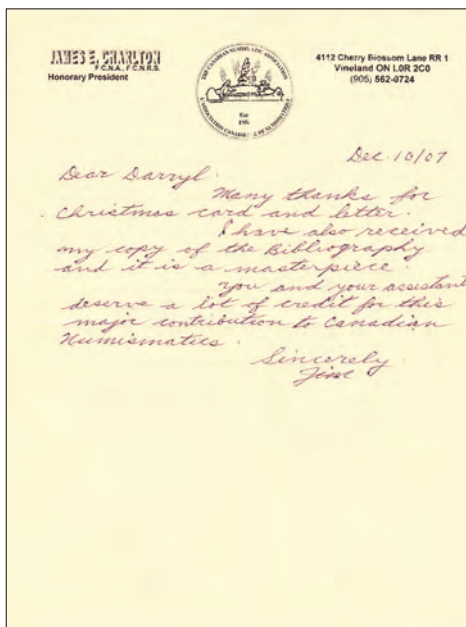 JAMES E. CHARLTON
F.C.N.A., F.C.N.R.S.
Honorary President
THE CANADIAN NUMISMATIC ASSOCIATION
4112 Cherry Blossom Lane RR 1
Vineland ON L0R 2C0
(905) 562-0724
Dec. 10/07
Dear Darryl.
Many thanks for
Christmas card and letter.
I have also received
my copy of the Bibliography
and it is a masterpiece.
You and your assistant
deserve a lot of credit for this
major contribution to Canadian
Numismatics.
Sincerely.
Jim